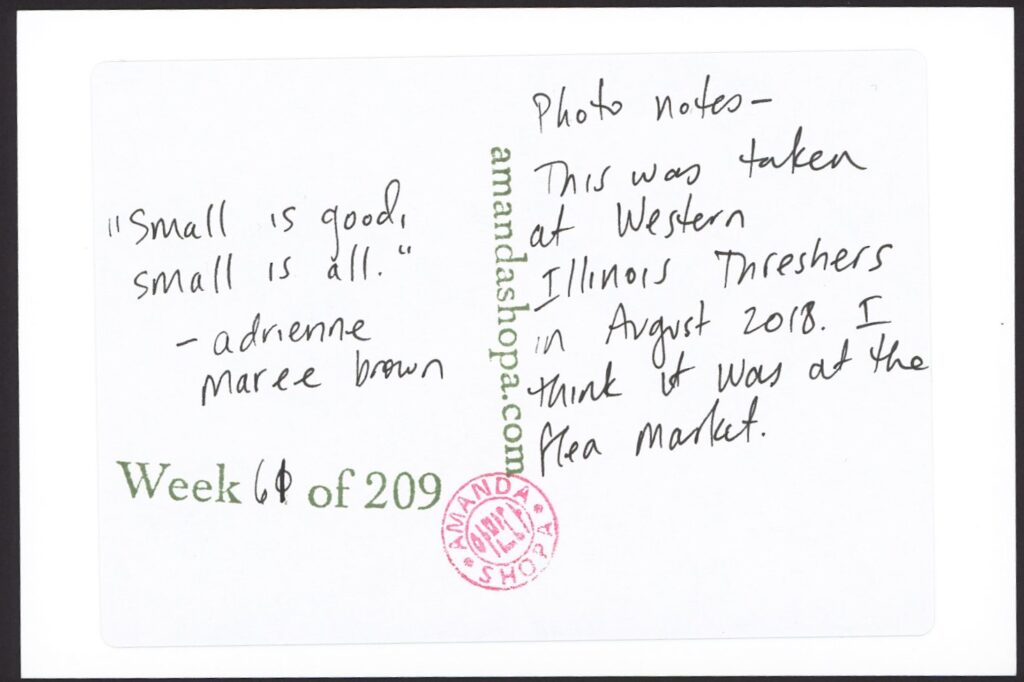 "Small is good,
small is all."
- adrienne
maree brown
Week 61 of 209
amandashopa.com
Photo notes-
This was taken
at Western
Illinois Threshers
in August 2018. I
think it was at the
flea market.
AMANDA
SHOPA